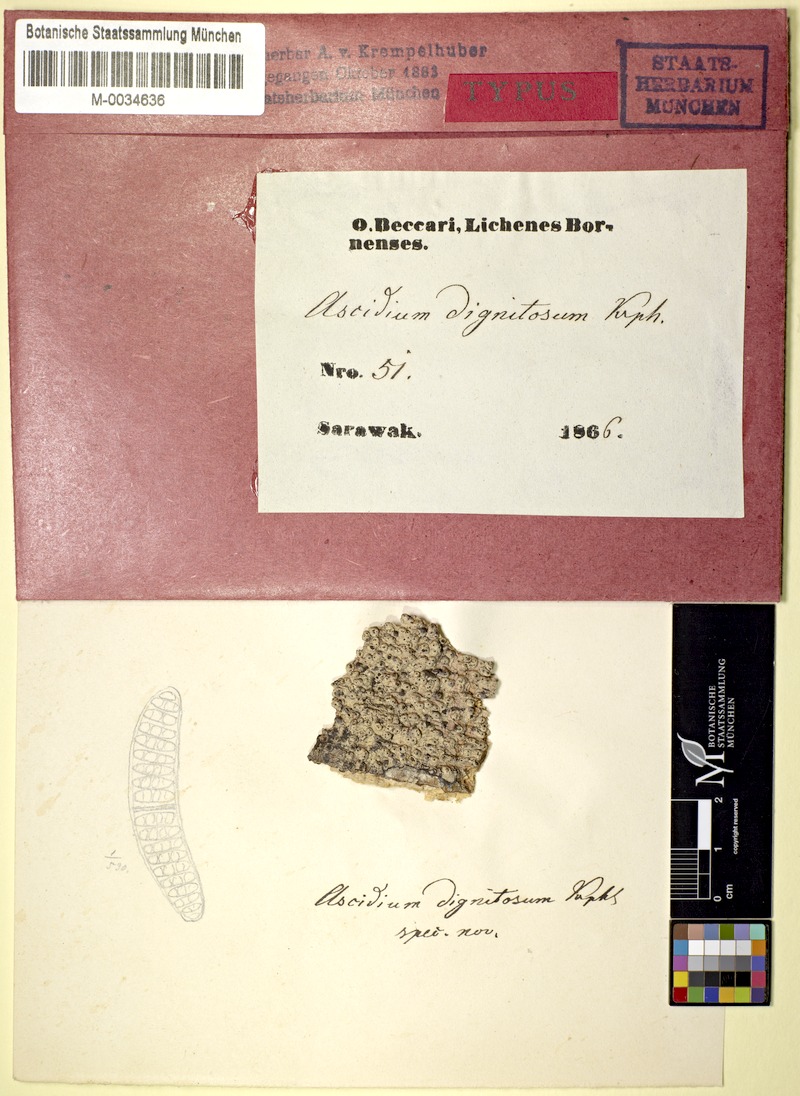 Botanische Staatssammlung München
M-0034636
herbar A. v. Krempelhuber
gegangen Oktober 1883
atsherbarium München
TYPUS
STAATS-
HERBARIUM
MÜNCHEN
O. Beccari, Lichenes Bor-
nenses.
Ascidium dignitosum Krph.
Nro. 51.
Sarawak. 1866.
BOTANISCHE
STAATSSAMMLUNG
MÜNCHEN
0 1 2
cm
copyright reserved
Ascidium dignitosum Krph
spec. nov.